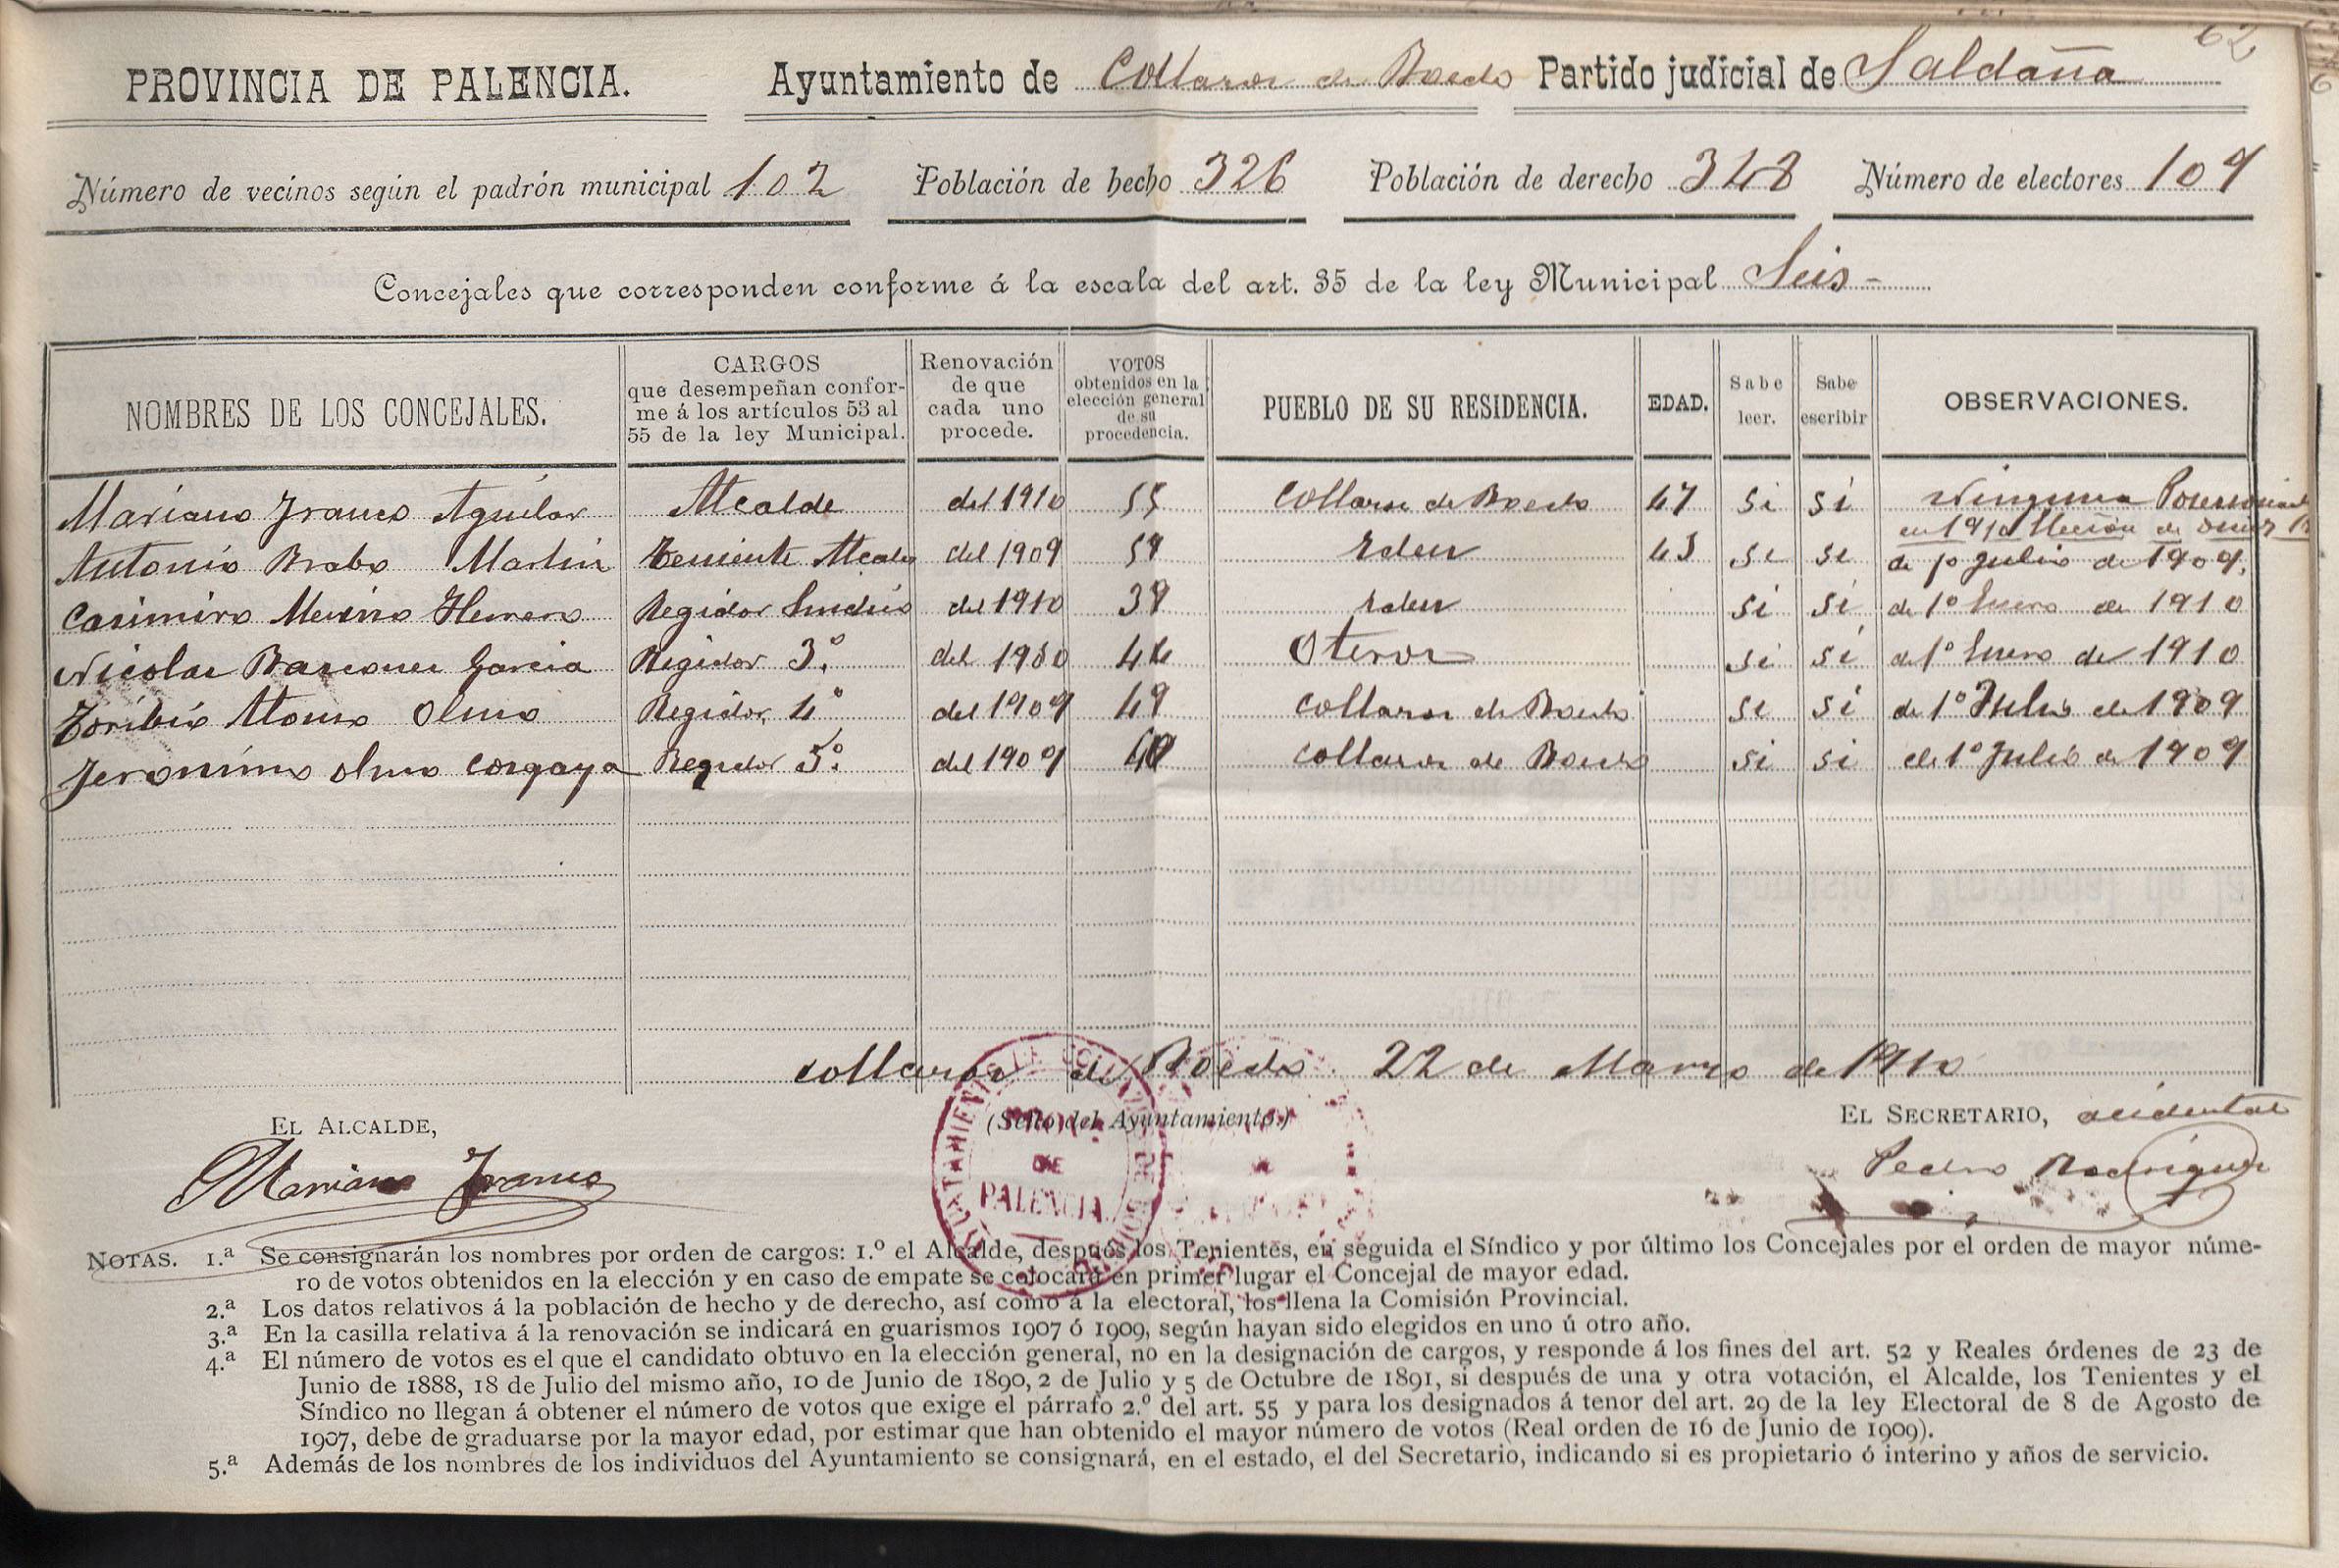 62
PROVINCIA DE PALENCIA. Ayuntamiento de Collazos de Boedo Partido judicial de Saldaña
Número de vecinos según el padrón municipal 102 Población de hecho 326 Población de derecho 348 Número de electores 109
Concejales que corresponden conforme á la escala del art. 35 de la ley Municipal Seis-
NOMBRES DE LOS CONCEJALES. CARGOS que desempeñan conforme á los artículos 53 al 55 de la ley Municipal. Renovación de que cada uno procede. VOTOS obtenidos en la elección general de su procedencia. PUEBLO DE SU RESIDENCIA. EDAD. Sabe leer. Sabe escribir OBSERVACIONES.
Mariano Franco Aguilar Alcalde del 1910 55 Collazos de Boedo 47 si si Ninguna
Antonio Brabo Martin Teniente Alcalde del 1909 Idem 43 si si de 1º Julio de 1909.
Casimiro Merino Herrero Regidor Sindico del 1910 Idem si si de 1º Enero de 1910
Nicolas Garcia Regidor 3.º del Oteros si si de 1º Enero de 1910
Toribio Alonso Olmo Regidor 4º del 1909 49 Collazos de Boedo si si de 1º Julio de 1909
Jeronimo Olmo Regidor 5.º del 1909 Collazos de Boedo si si de 1º Julio de 1909
Collazos de Boedo 22 de Marzo de 1910
EL ALCALDE, (Sello del Ayuntamiento.) EL SECRETARIO, acidental
Mariano Franco PALENCIA Pedro Rodriguez
NOTAS. 1.ª Se consignarán los nombres por orden de cargos: 1.º el Alcalde, después los Tenientes, en seguida el Síndico y por último los Concejales por el orden de mayor núme-
ro de votos obtenidos en la elección y en caso de empate se colocará en primer lugar el Concejal de mayor edad.
2.ª Los datos relativos á la población de hecho y de derecho, así como á la electoral, los llena la Comisión Provincial.
3.ª En la casilla relativa á la renovación se indicará en guarismos 1907 ó 1909, según hayan sido elegidos en uno ú otro año.
4.ª El número de votos es el que el candidato obtuvo en la elección general, no en la designación de cargos, y responde á los fines del art. 52 y Reales órdenes de 23 de
Junio de 1888, 18 de Julio del mismo año, 10 de Junio de 1890, 2 de Julio y 5 de Octubre de 1891, si después de una y otra votación, el Alcalde, los Tenientes y el
Síndico no llegan á obtener el número de votos que exige el párrafo 2.º del art. 55 y para los designados á tenor del art. 29 de la ley Electoral de 8 de Agosto de
1907, debe de graduarse por la mayor edad, por estimar que han obtenido el mayor número de votos (Real orden de 16 de Junio de 1909).
5.ª Además de los nombres de los individuos del Ayuntamiento se consignará, en el estado, el del Secretario, indicando si es propietario ó interino y años de servicio.